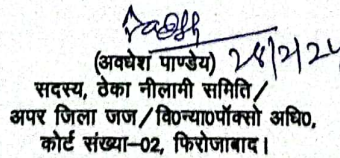 (अवधेश पाण्डेय) 28/2/24
सदस्य, ठेका नीलामी समिति /
अपर जिला जज / वि0न्या0पॉक्सो अधि0,
कोर्ट संख्या-02, फिरोजाबाद।